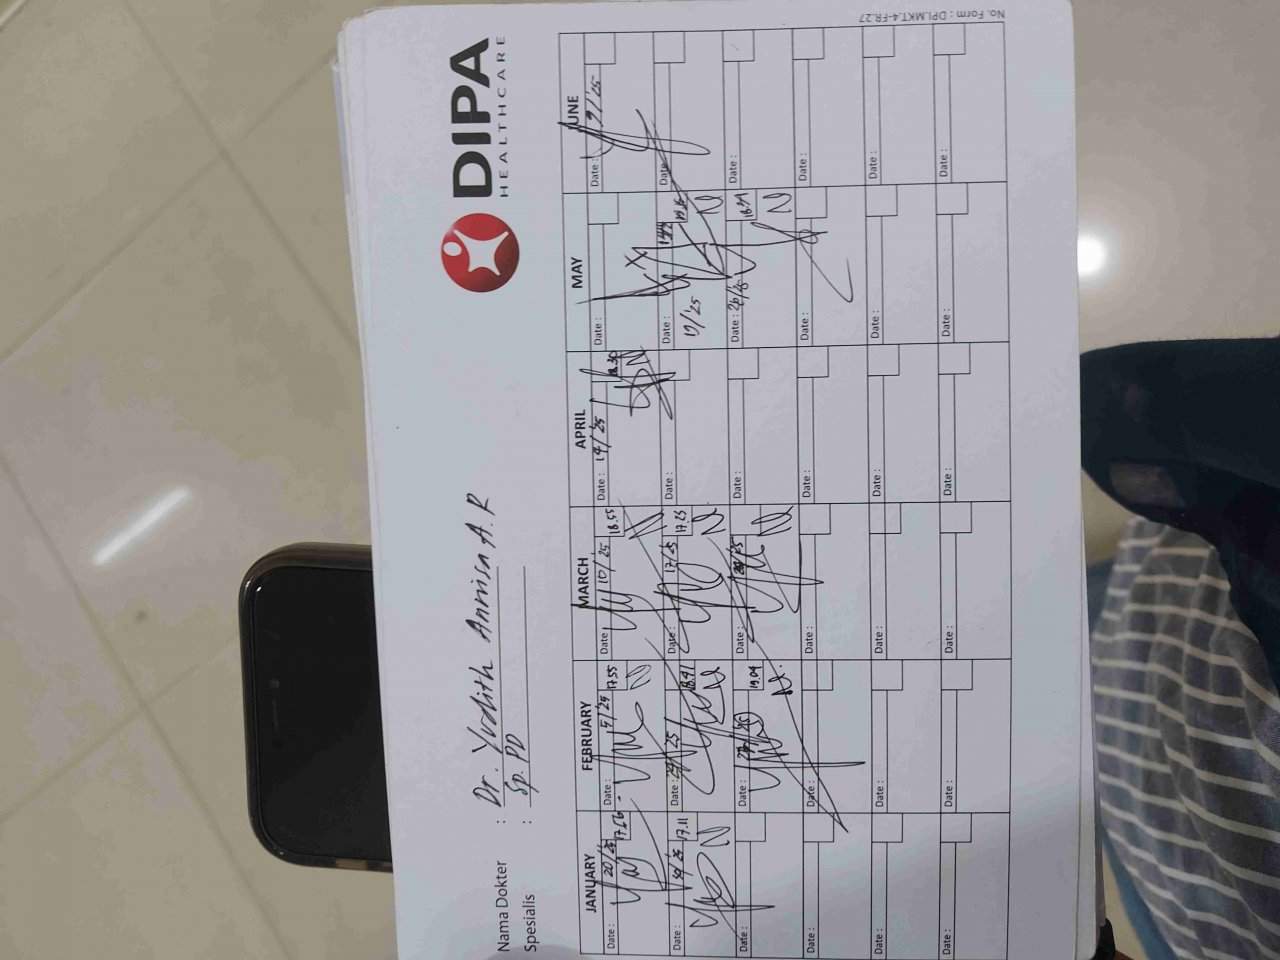 DIPA
HEALTHCARE
Nama Dokter : Dr. Yudith Annisa A. R
Spesialis : Sp. PD
JANUARY FEBRUARY MARCH APRIL MAY JUNE
Date : 20/25 Date : 5/25 17.55 Date : 10/25 18.55 Date : 14/25 18.30 Date : Date : 9/25
Date : 17.11 Date : 24/25 18.41 Date : 17/25 17.25 Date : Date : 19/25 Date :
Date : Date : 19.04 Date : Date : Date : 26/5 Date :
Date : Date : Date : Date : Date : Date :
Date : Date : Date : Date : Date : Date :
Date : Date : Date : Date : Date : Date :
No. Form : DPI.MKT.4-FR.27